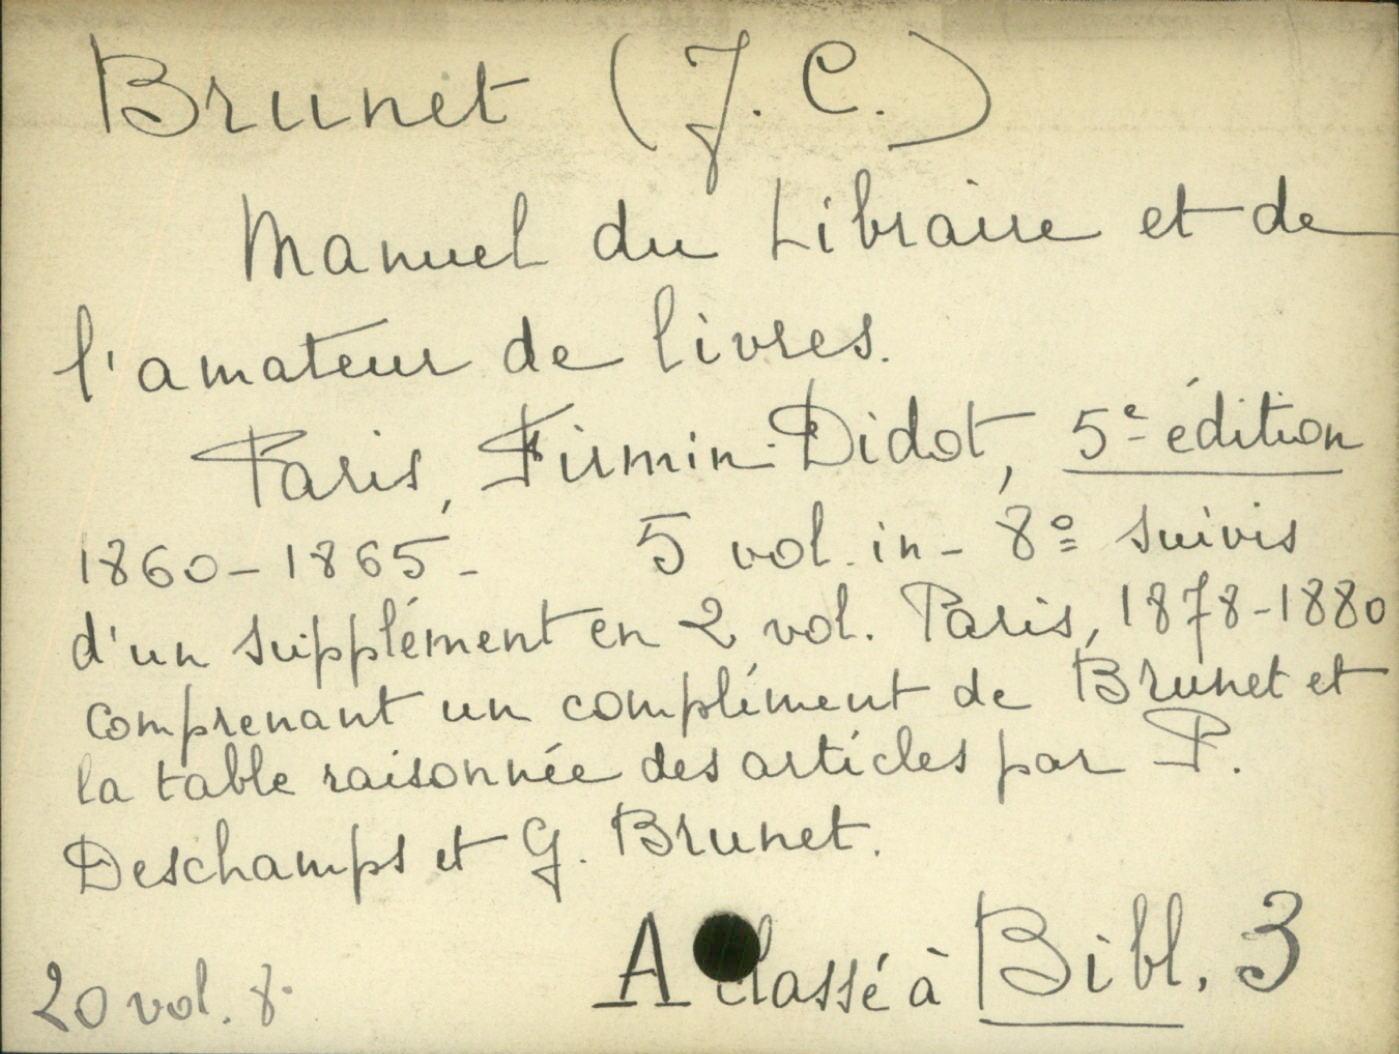 Brunet (J. C.)
Manuel du Libraire et de
l'amateur de livres.
Paris, Firmin-Didot, 5e édition
1860-1865- 5 vol. in-8º suivis
d'un supplément en 2 vol. Paris, 1878-1880
comprenant un complément de Brunet et
la table raisonnée des articles par P.
Deschamps et G. Brunet.
A classé à Bibl. 3
20 vol. 8.